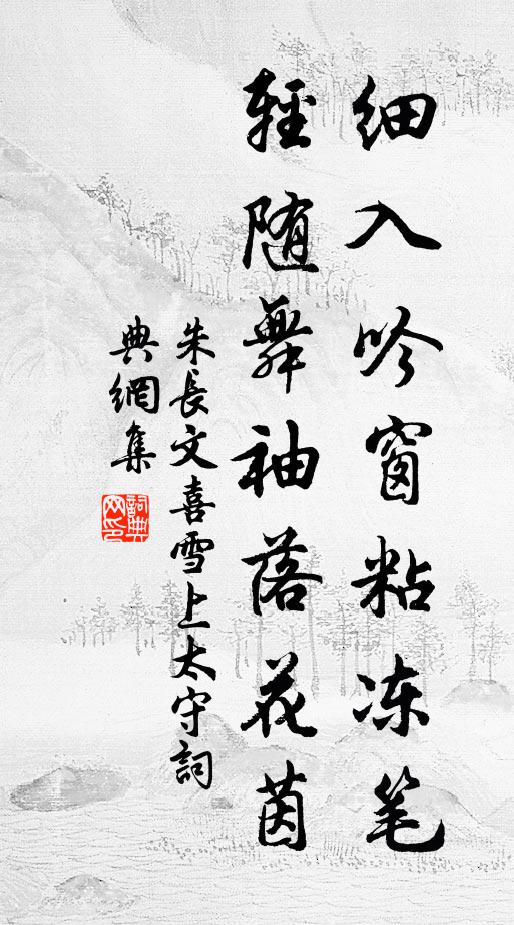 细入吟窗粘冻笔
轻随舞袖落花茵
朱長文喜雪上太守詞
典網集
詞典
网印